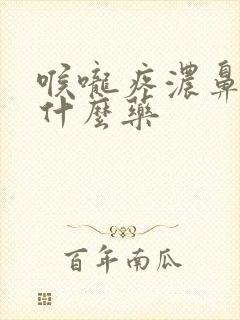 喉嚨疼濃鼻
什麼藥
百年南瓜